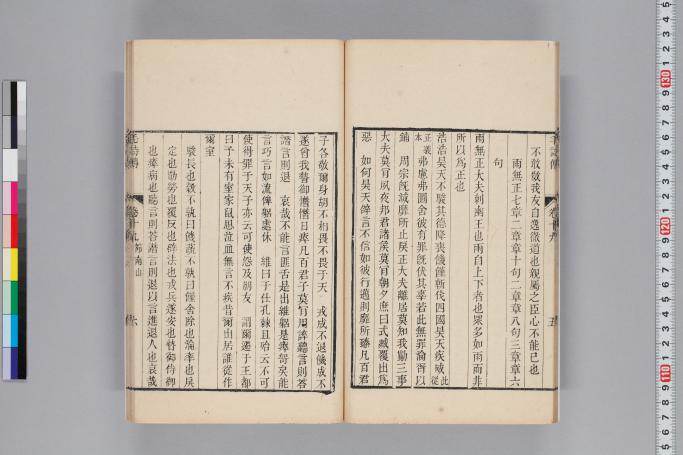 不敢傚我友自逸徹道也親屬之臣心不能已也
雨無正七章二章章十句二章章八句三章章六
句
雨無正大夫刺幽王也雨自上下者也眾多如雨而非
所以為正也
浩浩昊天不駿其德降喪饑饉斬伐四國旻天疾威從此
正義本弗慮弗圖舍彼有罪旣伏其辜若此無罪淪胥以
鋪 周宗旣滅靡所止戾正大夫離居莫知我勩三事
大夫莫肯夙夜邦君諸侯莫肯朝夕庶曰式臧覆出為
惡 如何昊天辟言不信如彼行邁則靡所臻凡百君
子各敬爾身胡不相畏不畏于天 戎成不退饑成不
遂曾我暬御憯憯日瘁凡百君子莫肯用訊聽言則荅
譖言則退 哀哉不能言匪舌是出維躬是瘁哿矣能
言巧言如流俾躬處休 維曰于仕孔棘且殆云不可
使得罪于天子亦云可使怨及朋友 謂爾遷于王都
曰予未有室家鼠思泣血無言不疾昔爾出居誰從作
爾室
駿長也穀不孰曰饑蔬不孰曰饉舍除也淪率也戾
定也勩勞也覆反也辟法也戎兵遂安也暬御侍御
也瘁病也聽言則荅譖言則退以言進退人也哀哉